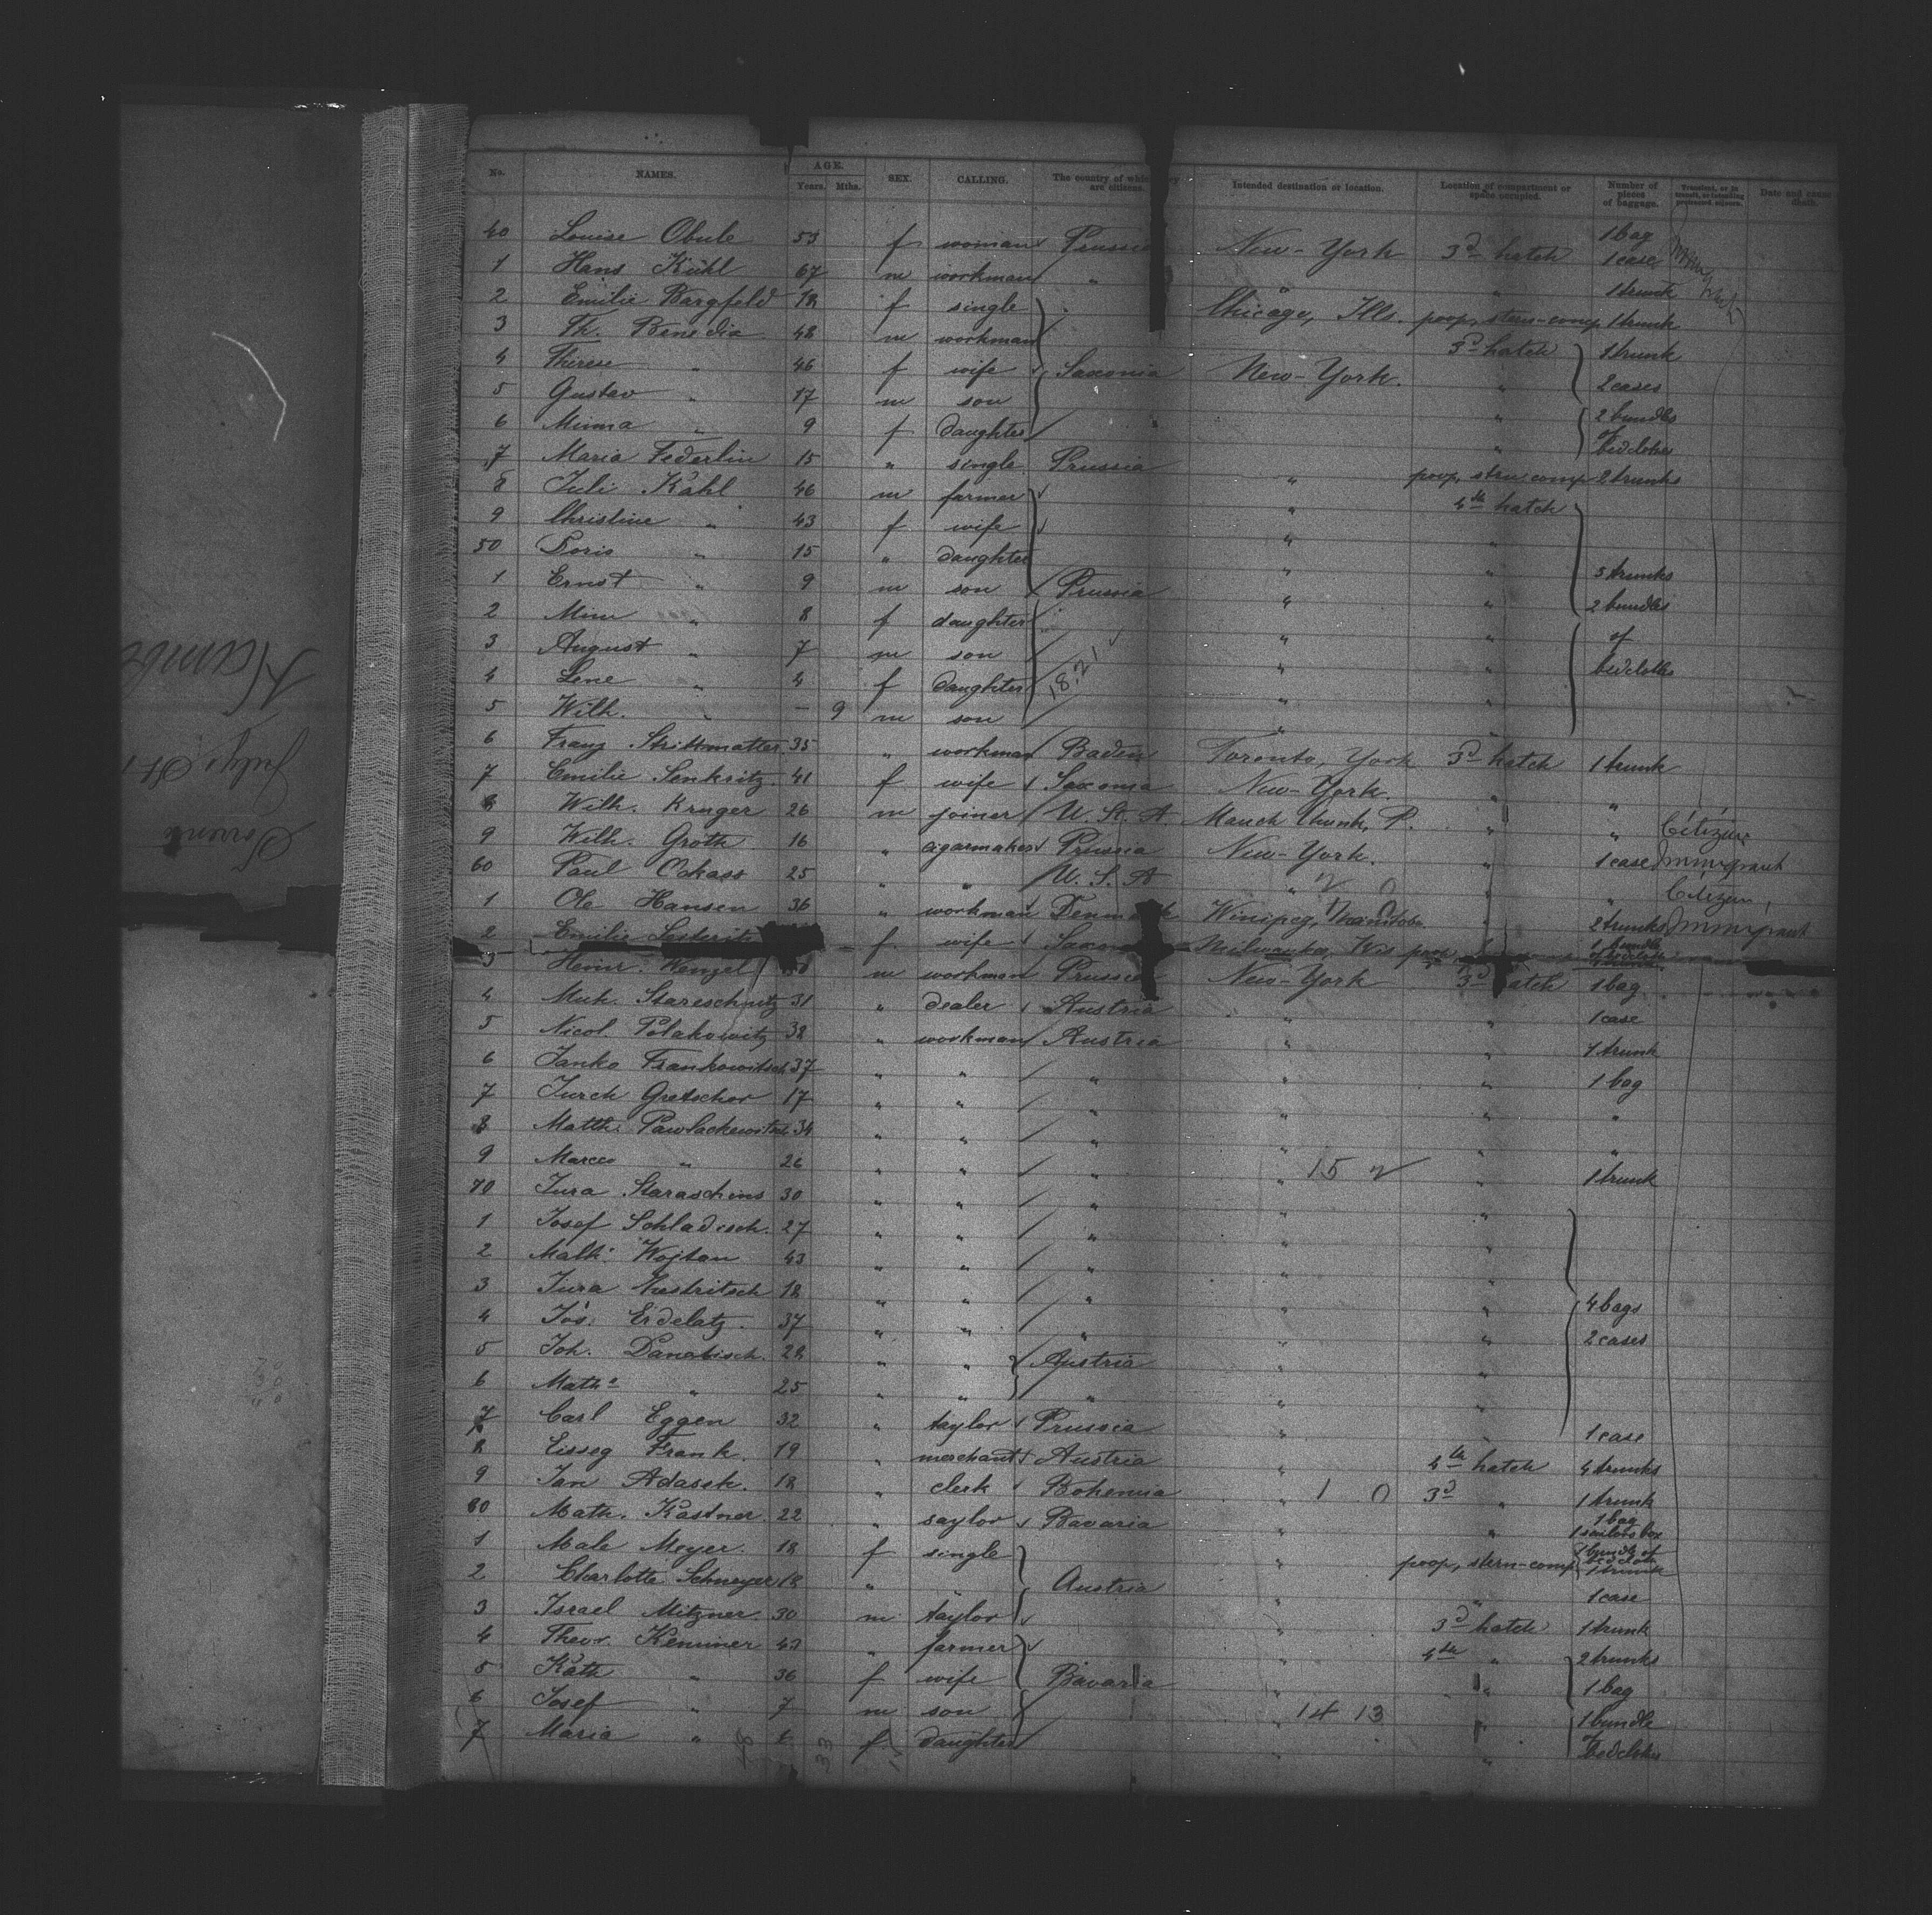 No. NAMES. AGE. Years. Mths. SEX. CALLING. The country of which they are citizens. Intended destination or location. Location of compartment or space occupied. Number of pieces of baggage. Transient, or in transit, or intending protracted sojourn. Date and cause death.
40 Louise Obule 53 f woman Prussia New-York 3d hatch 1 bag 1 case
1 Hans Kühl 67 m workman " " " 1 trunk
2 Emilie Bargfeld 18 f single " Chicago, Ills. poop, stern-comp 1 trunk
3 Th. Benedix 48 m workman 3d hatch 1 trunk
4 Therese " 46 f wife Saxonia New-York. " 2 cases
5 Gustav " 17 m son " 2 bundles
6 Minna " 9 f daughter " " of bedclothes
7 Maria Federlin 15 " single Prussia " poop, stern comp 2 trunks
8 Juli Kahl 46 m farmer " 4th hatch
9 Christine " 43 f wife " "
50 Doris " 15 " daughter " " 5 trunks
1 Ernst " 9 m son Prussia " " 2 bundles
2 Mim " 8 f daughter " " of
3 August " 7 m son " " bedcloths
4 Lene " 4 f daughter 18.21 " "
5 Wilh. " - 9 m son " "
6 Franz Strittmatter 35 " workman Baden Toronto, York 3d hatch 1 trunk
7 Emilie Senkritz 41 f wife Saxonia New-York. " "
8 Wilh. Kruger 26 m joiner U. St. A. Mauch Chunk, P. " " Citizen
9 Wilh. Groth 16 " cigarmaker Prussia New-York. " 1 case Immigrant
60 Paul Ockass 25 " " U. S. A " " " Citizen,
1 Ole Hansen 36 " workman Denmark Winipeg, Manitoba " 2 trunks Immigrant
2 Emilie f wife Milwaukee, Wis 1 bundle
3 Heinr. Wenzel m workman Prussia New-York 3d hatch 1 bag
4 Mich. Stareschnitz 31 " dealer Austria " " 1 case
5 Nicol. Polakowitz 38 " workman Austria " " 1 trunk
6 Janko Frankowitsch 37 " " " " " 1 bag
7 Jurek Gretschor 17 " " " " " "
8 Matth. Pawlackewitsch 34 " " " " " "
9 Marco " 26 " " " " 15 2 " 1 trunk
70 Jura Staraschins 30 " " " " "
1 Josef Schladisch. 27 " " " " "
2 Math. Wojtan 43 " " " " "
3 Jura 18 " " " " " 4 bags
4 Jos. Erdelatz. 37 " " " " " 2 cases
5 Joh. Danobisch. 28 " " Austria " "
6 Math. " 25 " " " " "
7 Carl Eggen 32 " taylor Prussia " " 1 case
8 Eisseg Frank. 19 " merchant Austria " 4th hatch 4 trunks
9 Jan Adasek. 18 " clerk Bohemia " 1 0 3d " 1 trunk
80 Math. Kastner. 22 " saylor Bavaria " " 1 bag 1 sailors box
1 Male Meyer. 18 f single " poop, stern-comp 1 bundle of bedcloth 1 trunk
2 Charlotte Schneyer 18 " " Austria " " 1 case
3 Israel Mitzner. 30 m taylor " 3d hatch 1 trunk
4 Theor. Kemmer 43 " farmer " 4th " 2 trunks
5 Kath " 36 f wife Bavaria " " 1 bag
6 Josef " 7 m son " 14 13 " 1 bundle
7 Maria " f daughter " " of bedclothes
33